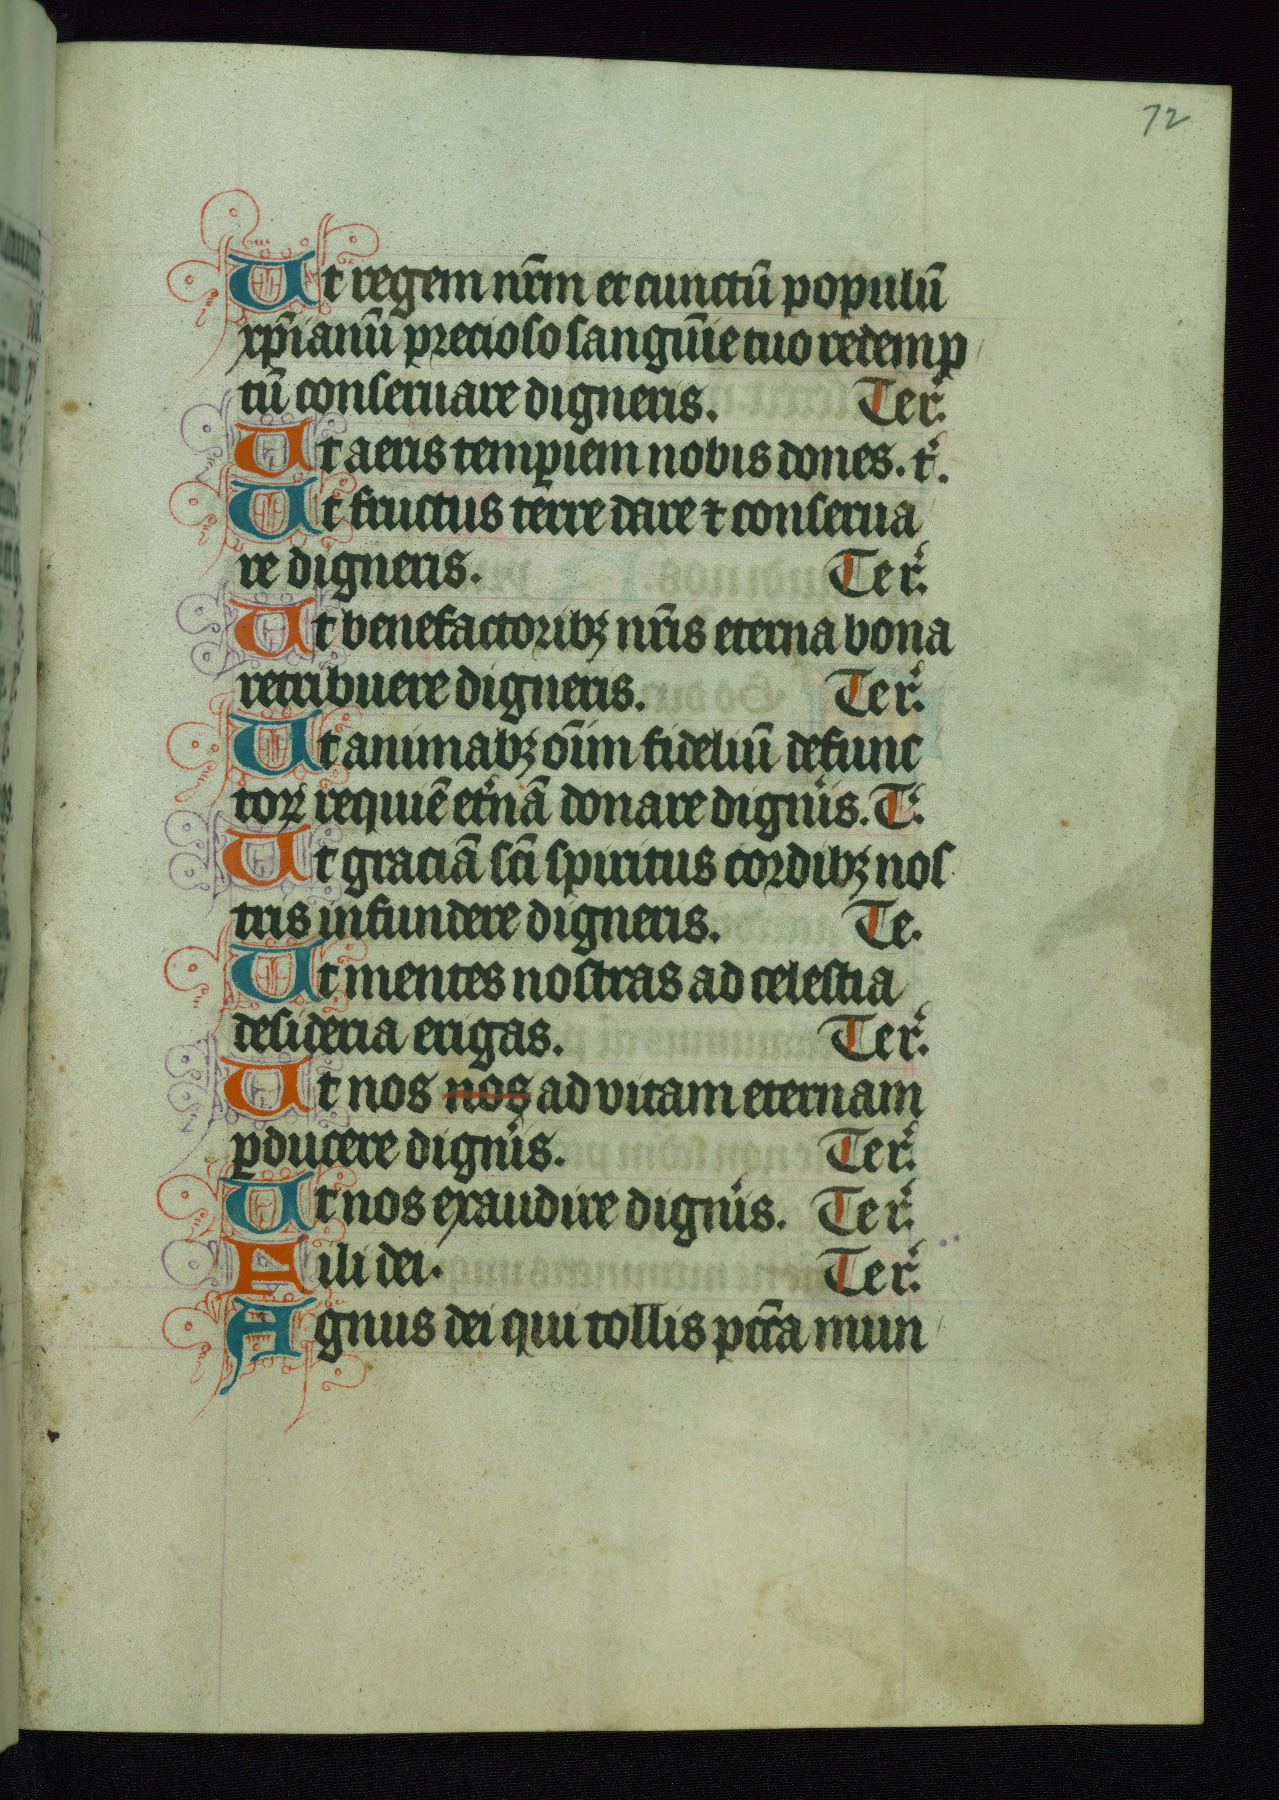 72
Ut regem nr̄m et cunctū populū
xp̄ianū precioso sanguīe tuo redemp
tū conseruare digneris. Ter.
Ut aeris temp̄iem nobis dones. t.
Ut fructus terre dare ⁊ conserua
re digneris. Ter.
Ut benefactoribꝫ nr̄is eterna bona
retribuere digneris. Ter.
Ut animabꝫ oīm fideliū defunc
toꝝ requiē etnā donare dignis. T.
Ut graciā sc̄i spiritus cordibꝫ nos
tris infundere digneris. Te.
Ut mentes nostras ad celestia
desideria erigas. Ter.
Ut nos nos ad vitam eternam
ꝑducere dignis. Ter.
Ut nos exaudire dignis. Ter.
Fili dei. Ter.
Agnus dei qui tollis pc̄c̄a mun